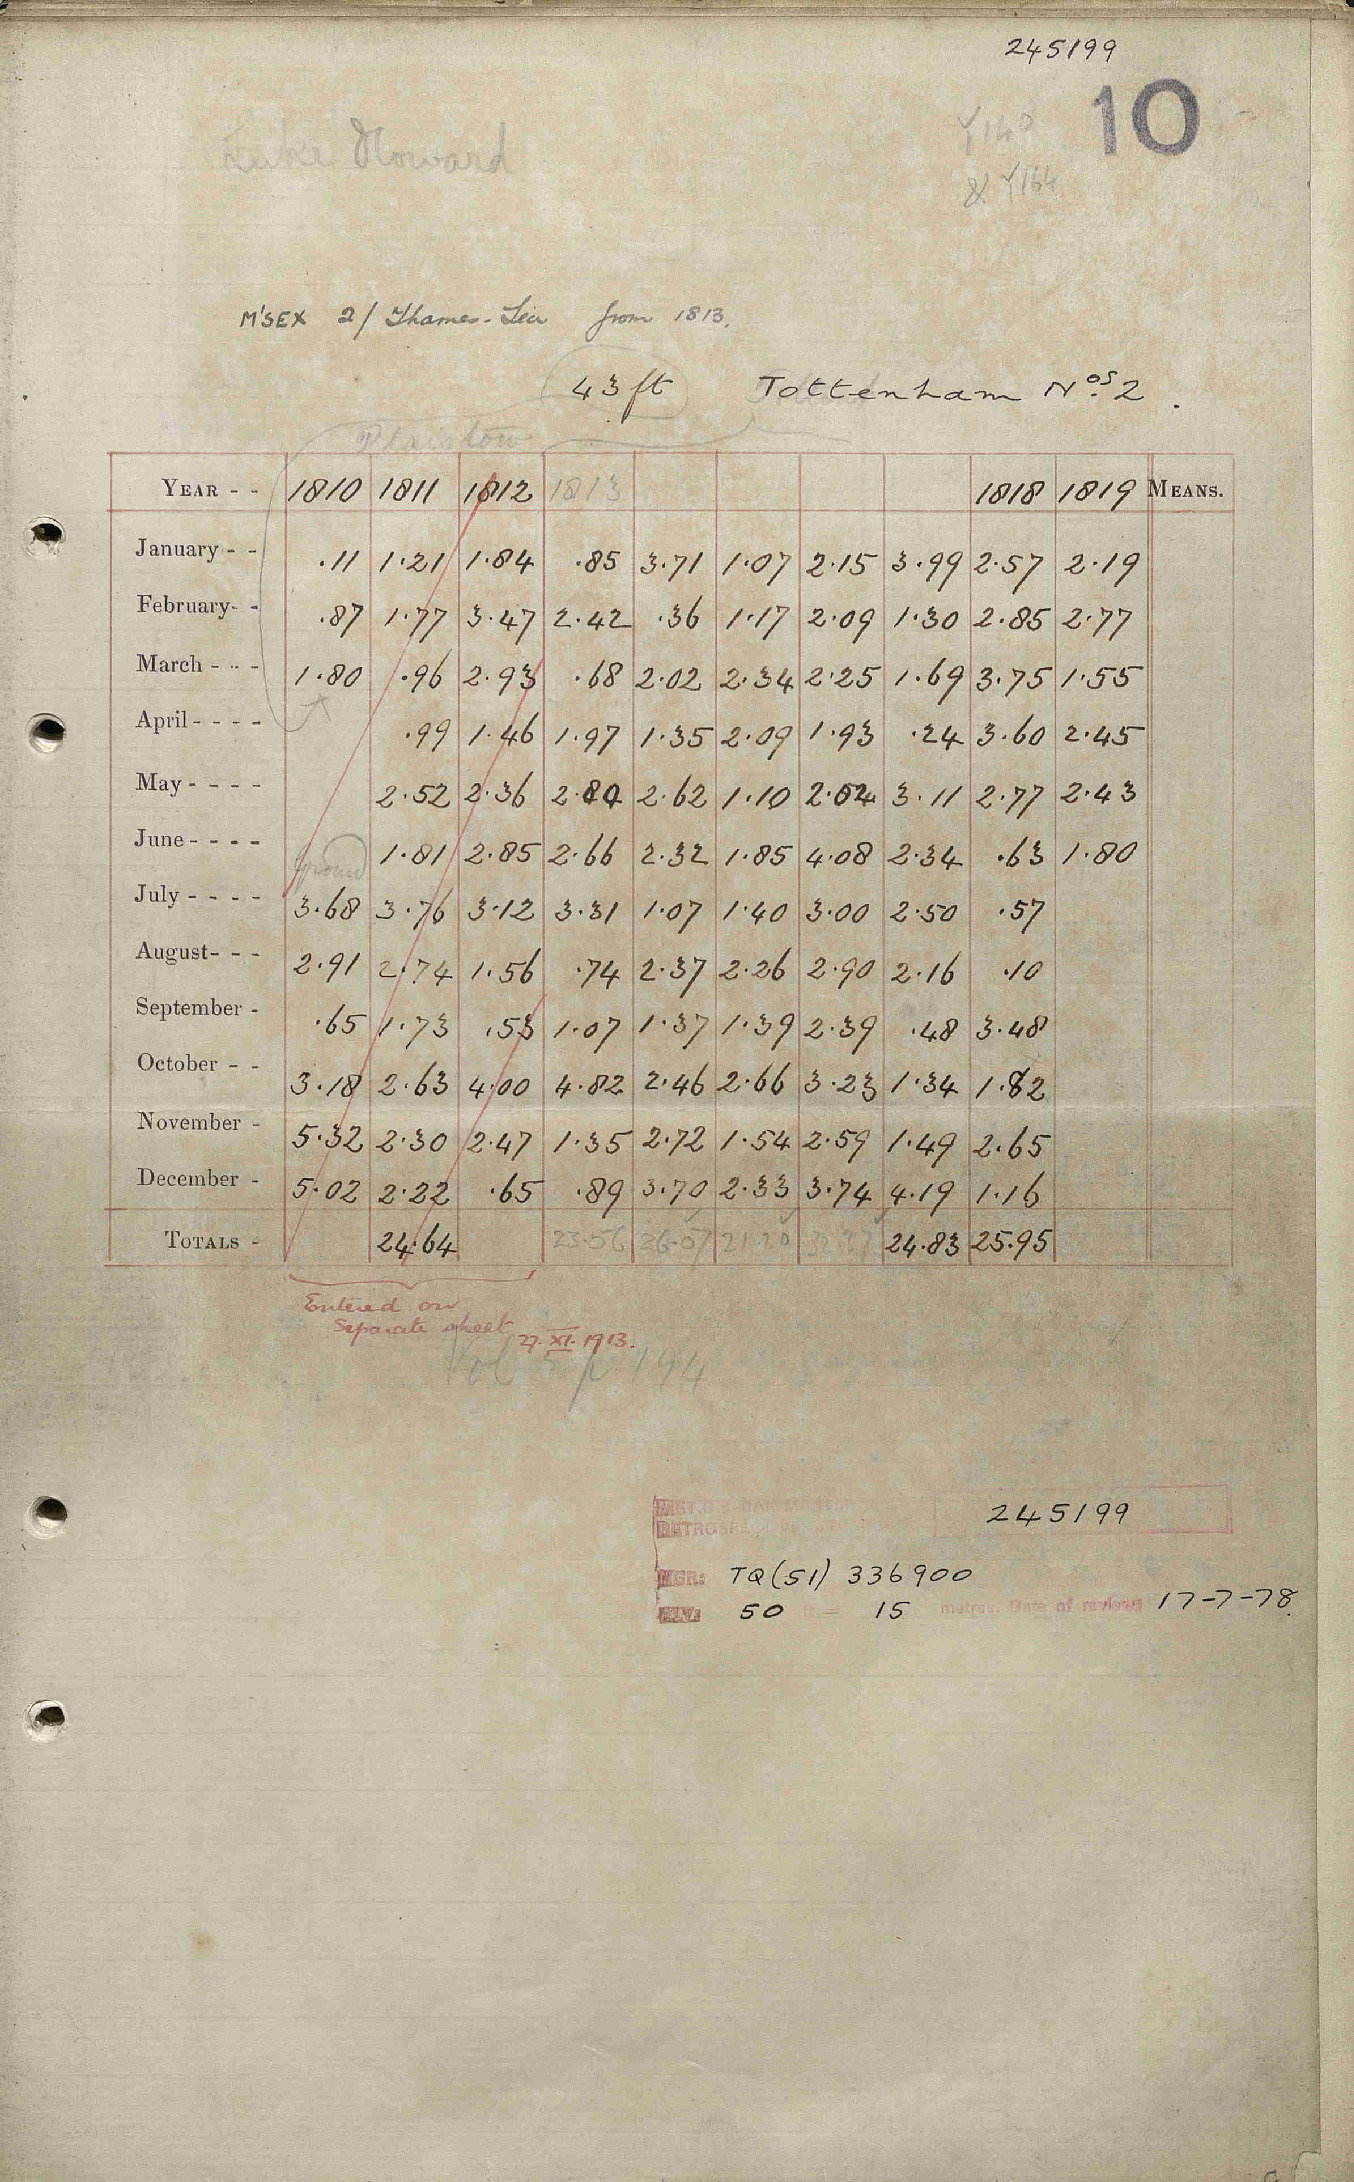 245199
10
Luke Howard
& Y164
M'SEX 2/ Thames-Lea from 1813.
43 ft Tottenham Nos. 2.
Plaistow
YEAR - - 1810 1811 1812 1813 1818 1819 MEANS.
January - - .11 1.21 1.84 .85 3.71 1.07 2.15 3.99 2.57 2.19
February - - .87 1.77 3.47 2.42 .36 1.17 2.09 1.30 2.85 2.77
March - - - 1.80 .96 2.93 .68 2.02 2.34 2.25 1.69 3.75 1.55
April - - - - .99 1.46 1.97 1.35 2.09 1.93 .24 3.60 2.45
May - - - - 2.52 2.36 2.80 2.62 1.10 2.02 3.11 2.77 2.43
June - - - - 1.81 2.85 2.66 2.32 1.85 4.08 2.34 .63 1.80
ground
July - - - - 3.68 3.76 3.12 3.31 1.07 1.40 3.00 2.50 .57
August - - - 2.91 2.74 1.56 .74 2.37 2.26 2.90 2.16 .10
September - .65 1.73 .53 1.07 1.37 1.39 2.39 .48 3.48
October - - 3.18 2.63 4.00 4.82 2.46 2.66 3.23 1.34 1.82
November - 5.32 2.30 2.47 1.35 2.72 1.54 2.59 1.49 2.65
December - 5.02 2.22 .65 .89 3.70 2.33 3.74 4.19 1.16
TOTALS - 24.64 23.56 26.07 21.20 32.37 24.83 25.95
Entered on
separate sheet 27.XI.1913.
Vol 5 p. 194
245199
NGR: TQ(51) 336900
50 ft = 15 metres. Date of review: 17-7-78.